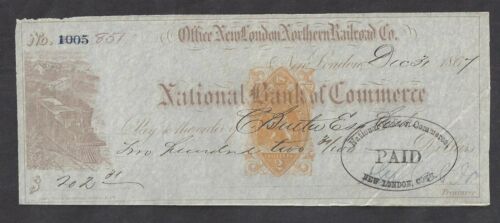 Office New London Northern Railroad Co.
No. 1005 851
New London, Dec 31 1867
National Bank of Commerce
Pay to the order of C. Butler Esq
Two hundred two /100 Dollars
$202
National Bank of Commerce
PAID
NEW LONDON, CONN.
Treasurer